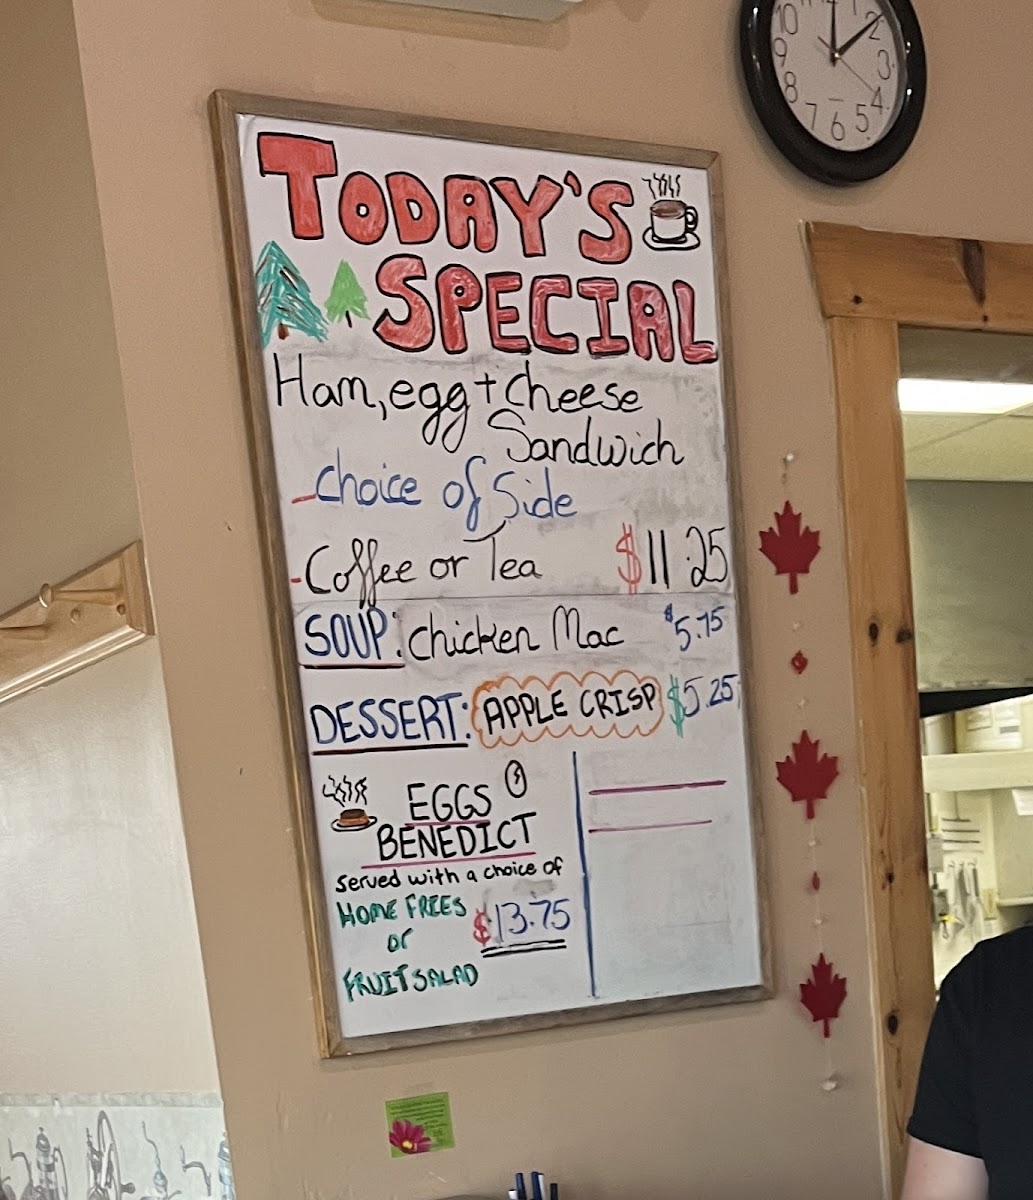 10 12 1
2
9 3
8 4
7 6 5
TODAY'S
SPECIAL
Ham, egg + cheese
Sandwich
- choice of Side
- Coffee or Tea $11.25
SOUP: chicken Mac $5.75
DESSERT: APPLE CRISP $5.25
EGGS
BENEDICT
served with a choice of
HOME FRIES
or $13.75
FRUIT SALAD